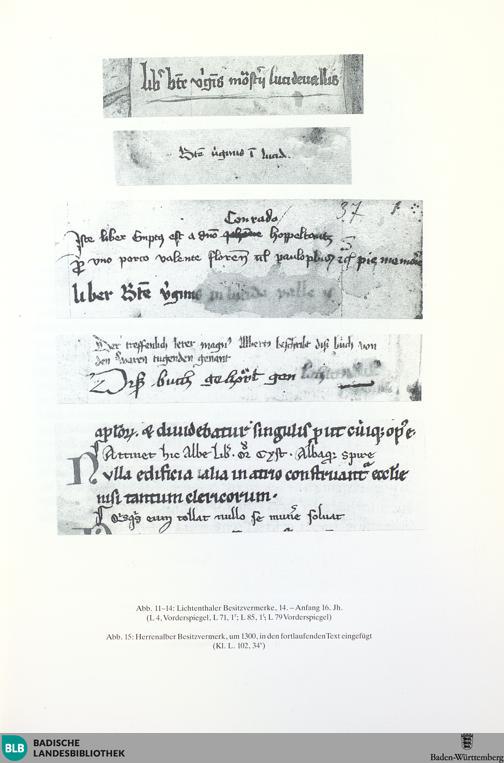 lib' bte v'gis most'ij lucideuallis
Bte v'ginis i lucid.
37
Conrado
Iste liber Emptus est a dno hoppeltantz
Pro vno porco valente floren vel paulo plus pie memorie
liber Bte v'ginis in lucida valle
Der treffenlich lerer magnus Albertus beschribt diß buch von
den waren tugenden genant
Diß buch gehört gen
aplor. & diuidebatur singulis prout cuiq; op' e.
Attinet hic Albe lib. Cyst. Albaq; Spire
Nvlla edificia talia in atrio construant' ecclie
nisi tantum clericorum.
eum tollat nullo se mune soluat
Abb. 11–14: Lichtenthaler Besitzvermerke, 14. – Anfang 16. Jh.
(L 4, Vorderspiegel, L 71, 1r; L 85, 1r; L 79 Vorderspiegel)
Abb. 15: Herrenalber Besitzvermerk, um 1300, in den fortlaufenden Text eingefügt
(Kl. L. 102, 34v)
BLB BADISCHE
LANDESBIBLIOTHEK
Baden-Württemberg